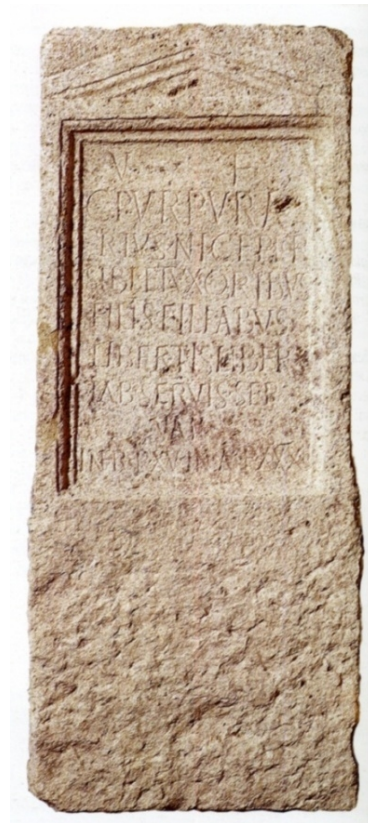 V F
C PVRPVRA
RIVS NICEPOR
SIBI ET VXORIBVS
FILIS FILIABVS
LIBERTIS LIBER
TAB SERVIS SER
VAB
IN FR P XV IN A P XXV